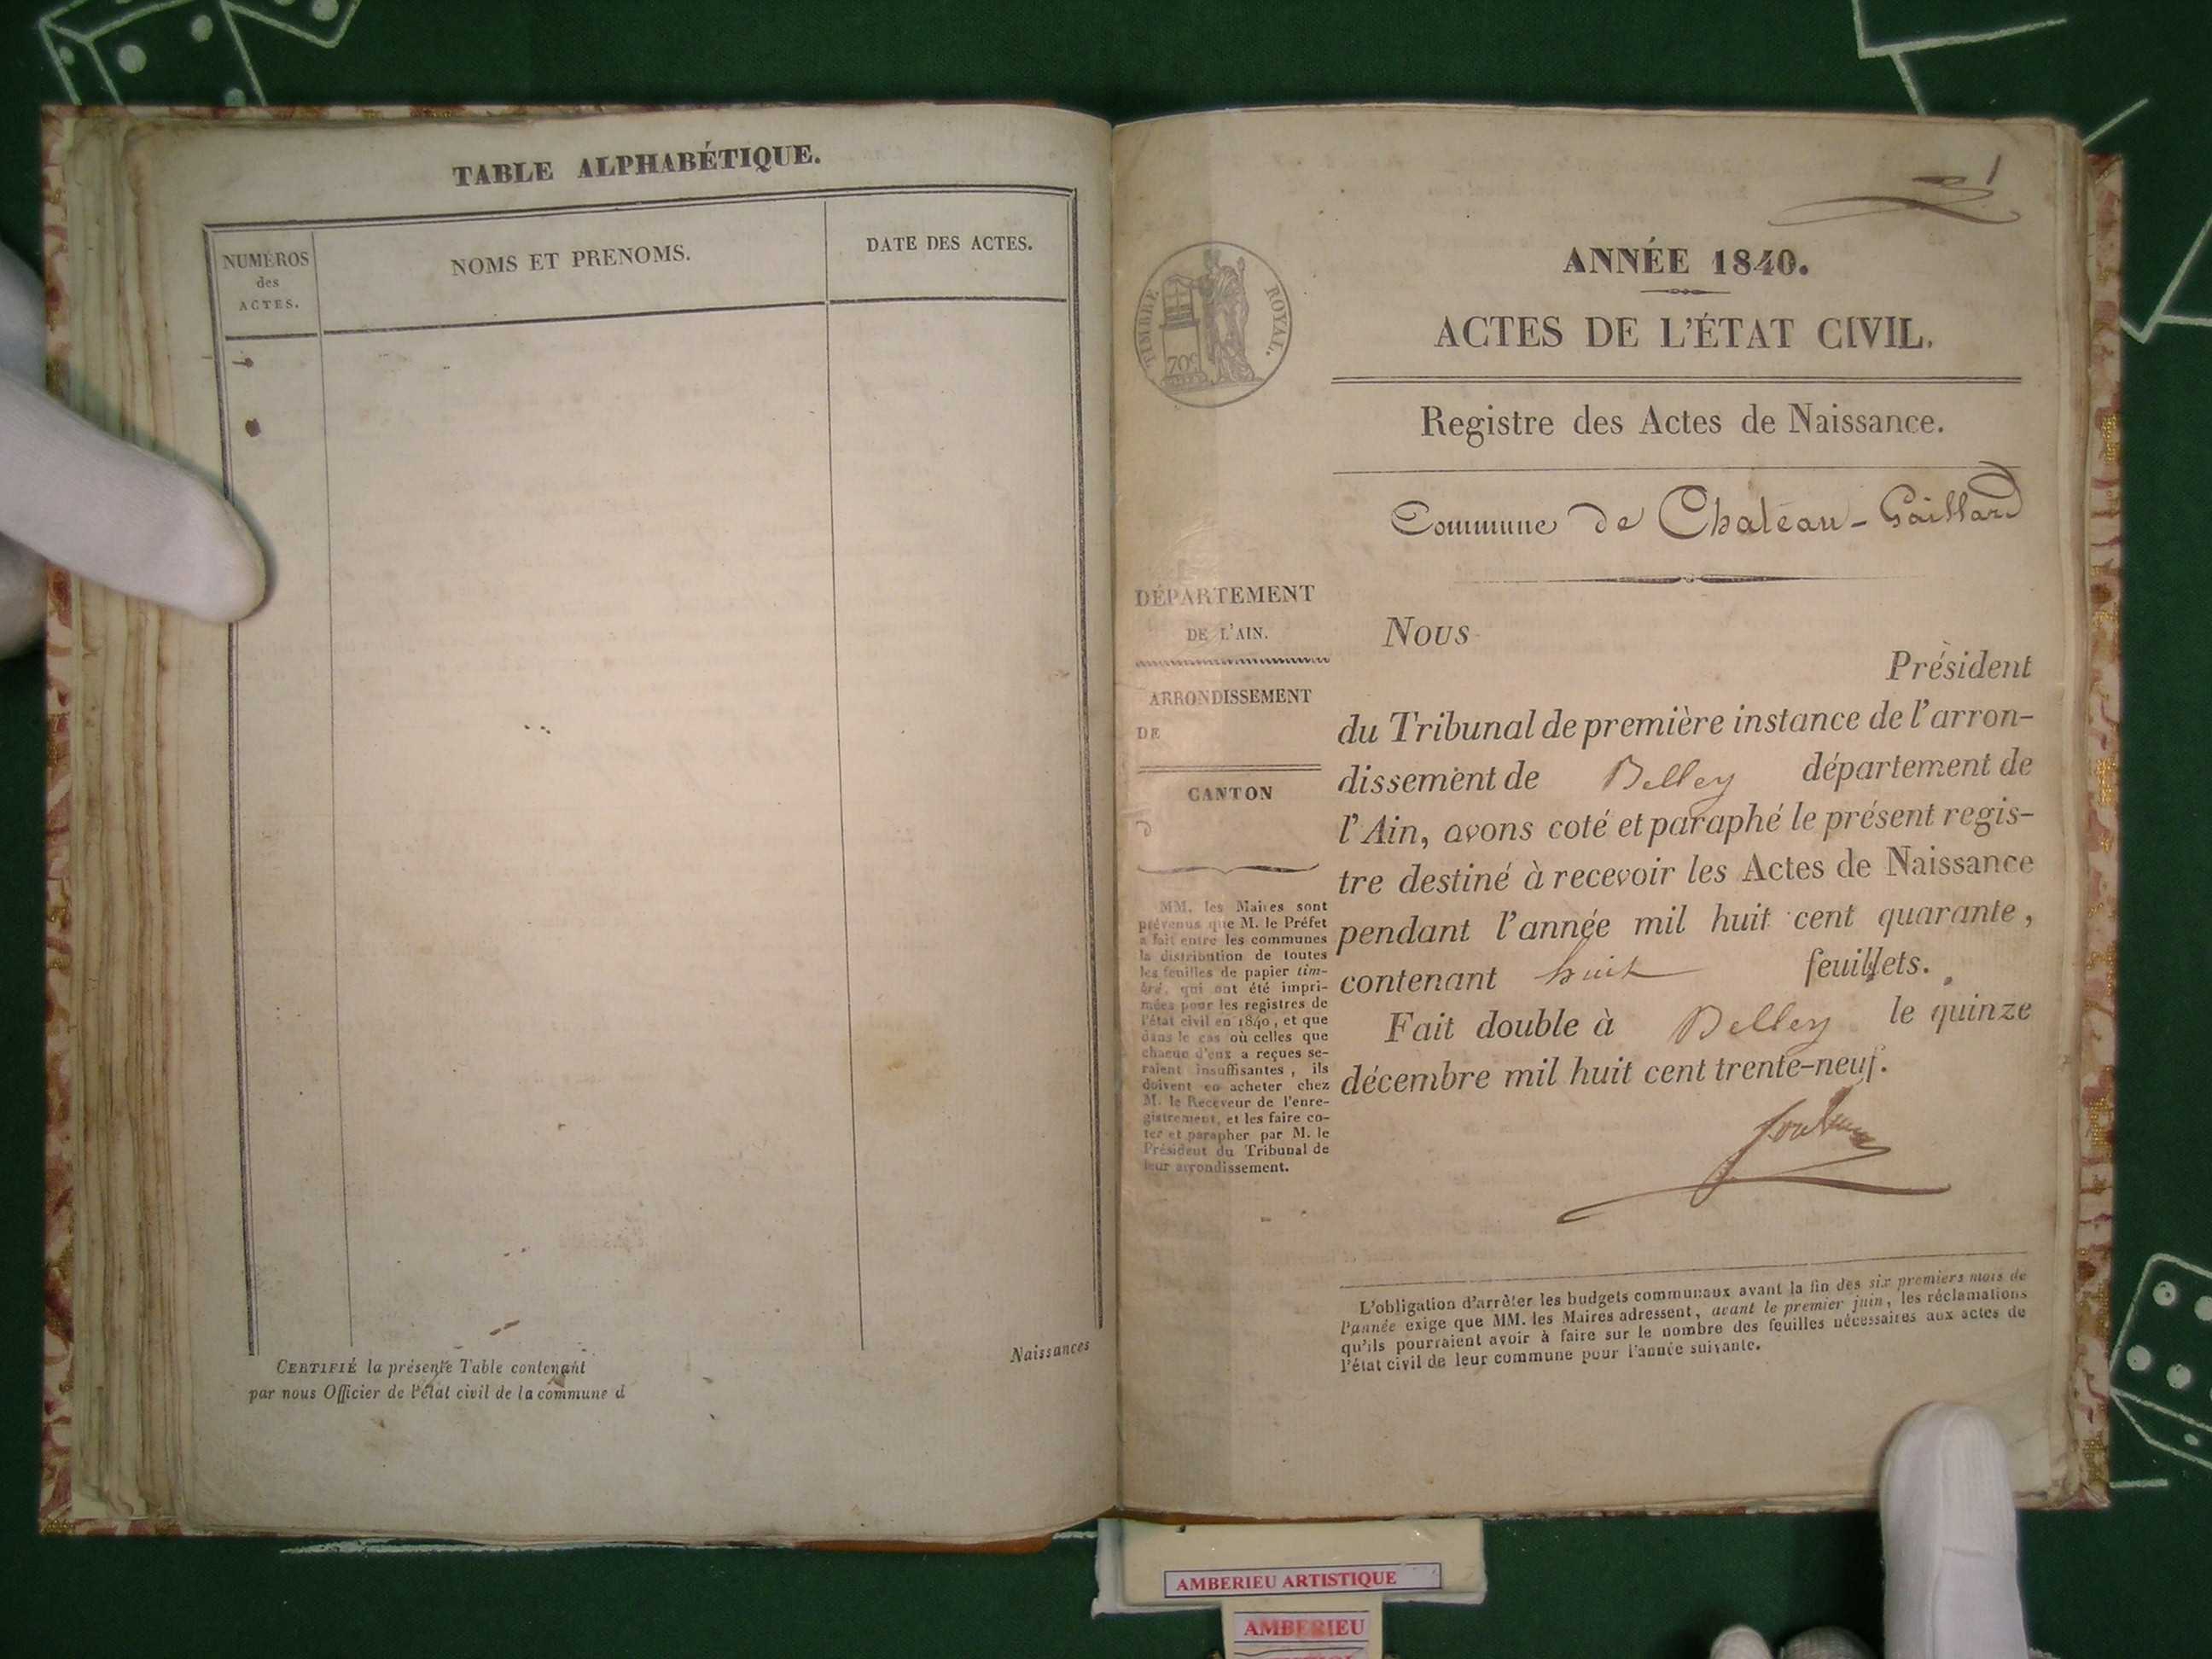 TABLE ALPHABÉTIQUE.
NUMÉROS
des
ACTES.
NOMS ET PRENOMS.
DATE DES ACTES.
Naissances
CERTIFIÉ la présente Table contenant
par nous Officier de l'état civil de la commune d
1
TIMBRE ROYAL.
70c
ANNÉE 1840.
ACTES DE L'ÉTAT CIVIL.
Registre des Actes de Naissance.
Commune de Chateau-Gaillard
DÉPARTEMENT
DE L'AIN.
ARRONDISSEMENT
DE
CANTON
MM. les Maires sont
prévenus que M. le Préfet
a fait entre les communes
la distribution de toutes
les feuilles de papier tim-
bré, qui ont été impri-
mées pour les registres de
l'état civil en 1840, et que
dans le cas où celles que
chacun d'eux a reçues se-
raient insuffisantes, ils
doivent en acheter chez
M. le Receveur de l'enre-
gistrement, et les faire co-
ter et parapher par M. le
Président du Tribunal de
leur arrondissement.
Nous
Président
du Tribunal de première instance de l'arron-
dissement de Belley département de
l'Ain, avons coté et paraphé le présent regis-
tre destiné à recevoir les Actes de Naissance
pendant l'année mil huit cent quarante,
contenant huit feuillets.
Fait double à Belley le quinze
décembre mil huit cent trente-neuf.
L'obligation d'arrêter les budgets communaux avant la fin des six premiers mois de
l'année exige que MM. les Maires adressent, avant le premier juin, les réclamations
qu'ils pourraient avoir à faire sur le nombre des feuilles nécessaires aux actes de
l'état civil de leur commune pour l'année suivante.
AMBERIEU ARTISTIQUE
AMBERIEU